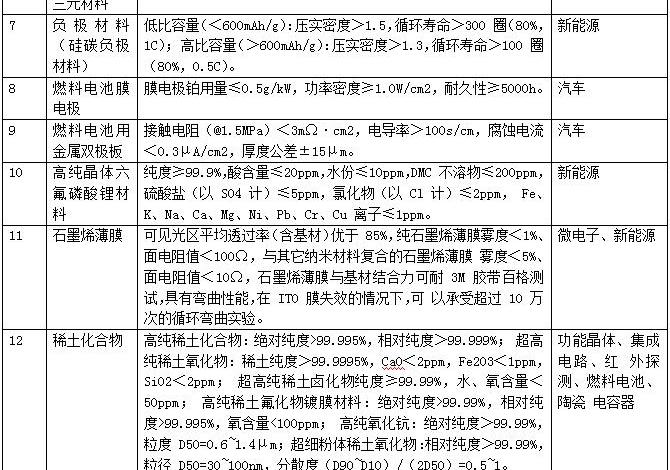 三元材料
7
负极材料
(硅碳负极
材料)
低比容量(＜600mAh/g):压实密度＞1.5,循环寿命＞300 圈(80%,
1C); 高比容量(＞600mAh/g):压实密度＞1.3,循环寿命＞100 圈
(80%, 0.5C)。
新能源
8
燃料电池膜
电极
膜电极铂用量≤0.5g/kW, 功率密度≥1.0W/cm2, 耐久性≥5000h。
汽车
9
燃料电池用
金属双极板
接触电阻 (@1.5MPa) ＜3mΩ·cm2, 电导率＞100s/cm, 腐蚀电流
＜0.3μA/cm2, 厚度公差±15μm。
汽车
10
高纯晶体六
氟磷酸锂材
料
纯度≥99.9%,酸含量≤20ppm,水份≤10ppm,DMC 不溶物≤200ppm,
硫酸盐 (以 SO4 计) ≤5ppm, 氯化物 (以 Cl 计) ≤2ppm, Fe、
K、Na、Ca、Mg、Ni、Pb、Cr、Cu 离子≤1ppm。
新能源
11
石墨烯薄膜
可见光区平均透过率(含基材)优于 85%,纯石墨烯薄膜雾度＜1%、
面电阻值＜100Ω, 与其它纳米材料复合的石墨烯薄膜 雾度＜5%、
面电阻值＜10Ω, 石墨烯薄膜与基材结合力可耐 3M 胶带百格测
试,具有弯曲性能,在 ITO 膜失效的情况下,可 以承受超过 10 万
次的循环弯曲实验。
微电子、新能源
12
稀土化合物
高纯稀土化合物: 绝对纯度>99.995%, 相对纯度＞99.999%; 超高
纯稀土氧化物: 稀土纯度＞99.9995%, CaO＜2ppm, Fe2O3＜1ppm,
SiO2＜2ppm; 超高纯稀土卤化物纯度≥99.99%, 水、氧含量＜
50ppm; 高纯稀土氟化物镀膜材料: 绝对纯度>99.99%, 相对纯
度>99.995%, 氧含量<100ppm; 高纯氧化钪: 绝对纯度＞99.99%,
粒度 D50=0.6~1.4μm; 超细粉体稀土氧化物:相对纯度＞99.99%,
粒径 D50=30~100nm, 分散度 (D90~D10) / (2D50) =0.5~1。
功能晶体、集成
电路、红 外探
测、燃料电池、
陶瓷 电容器